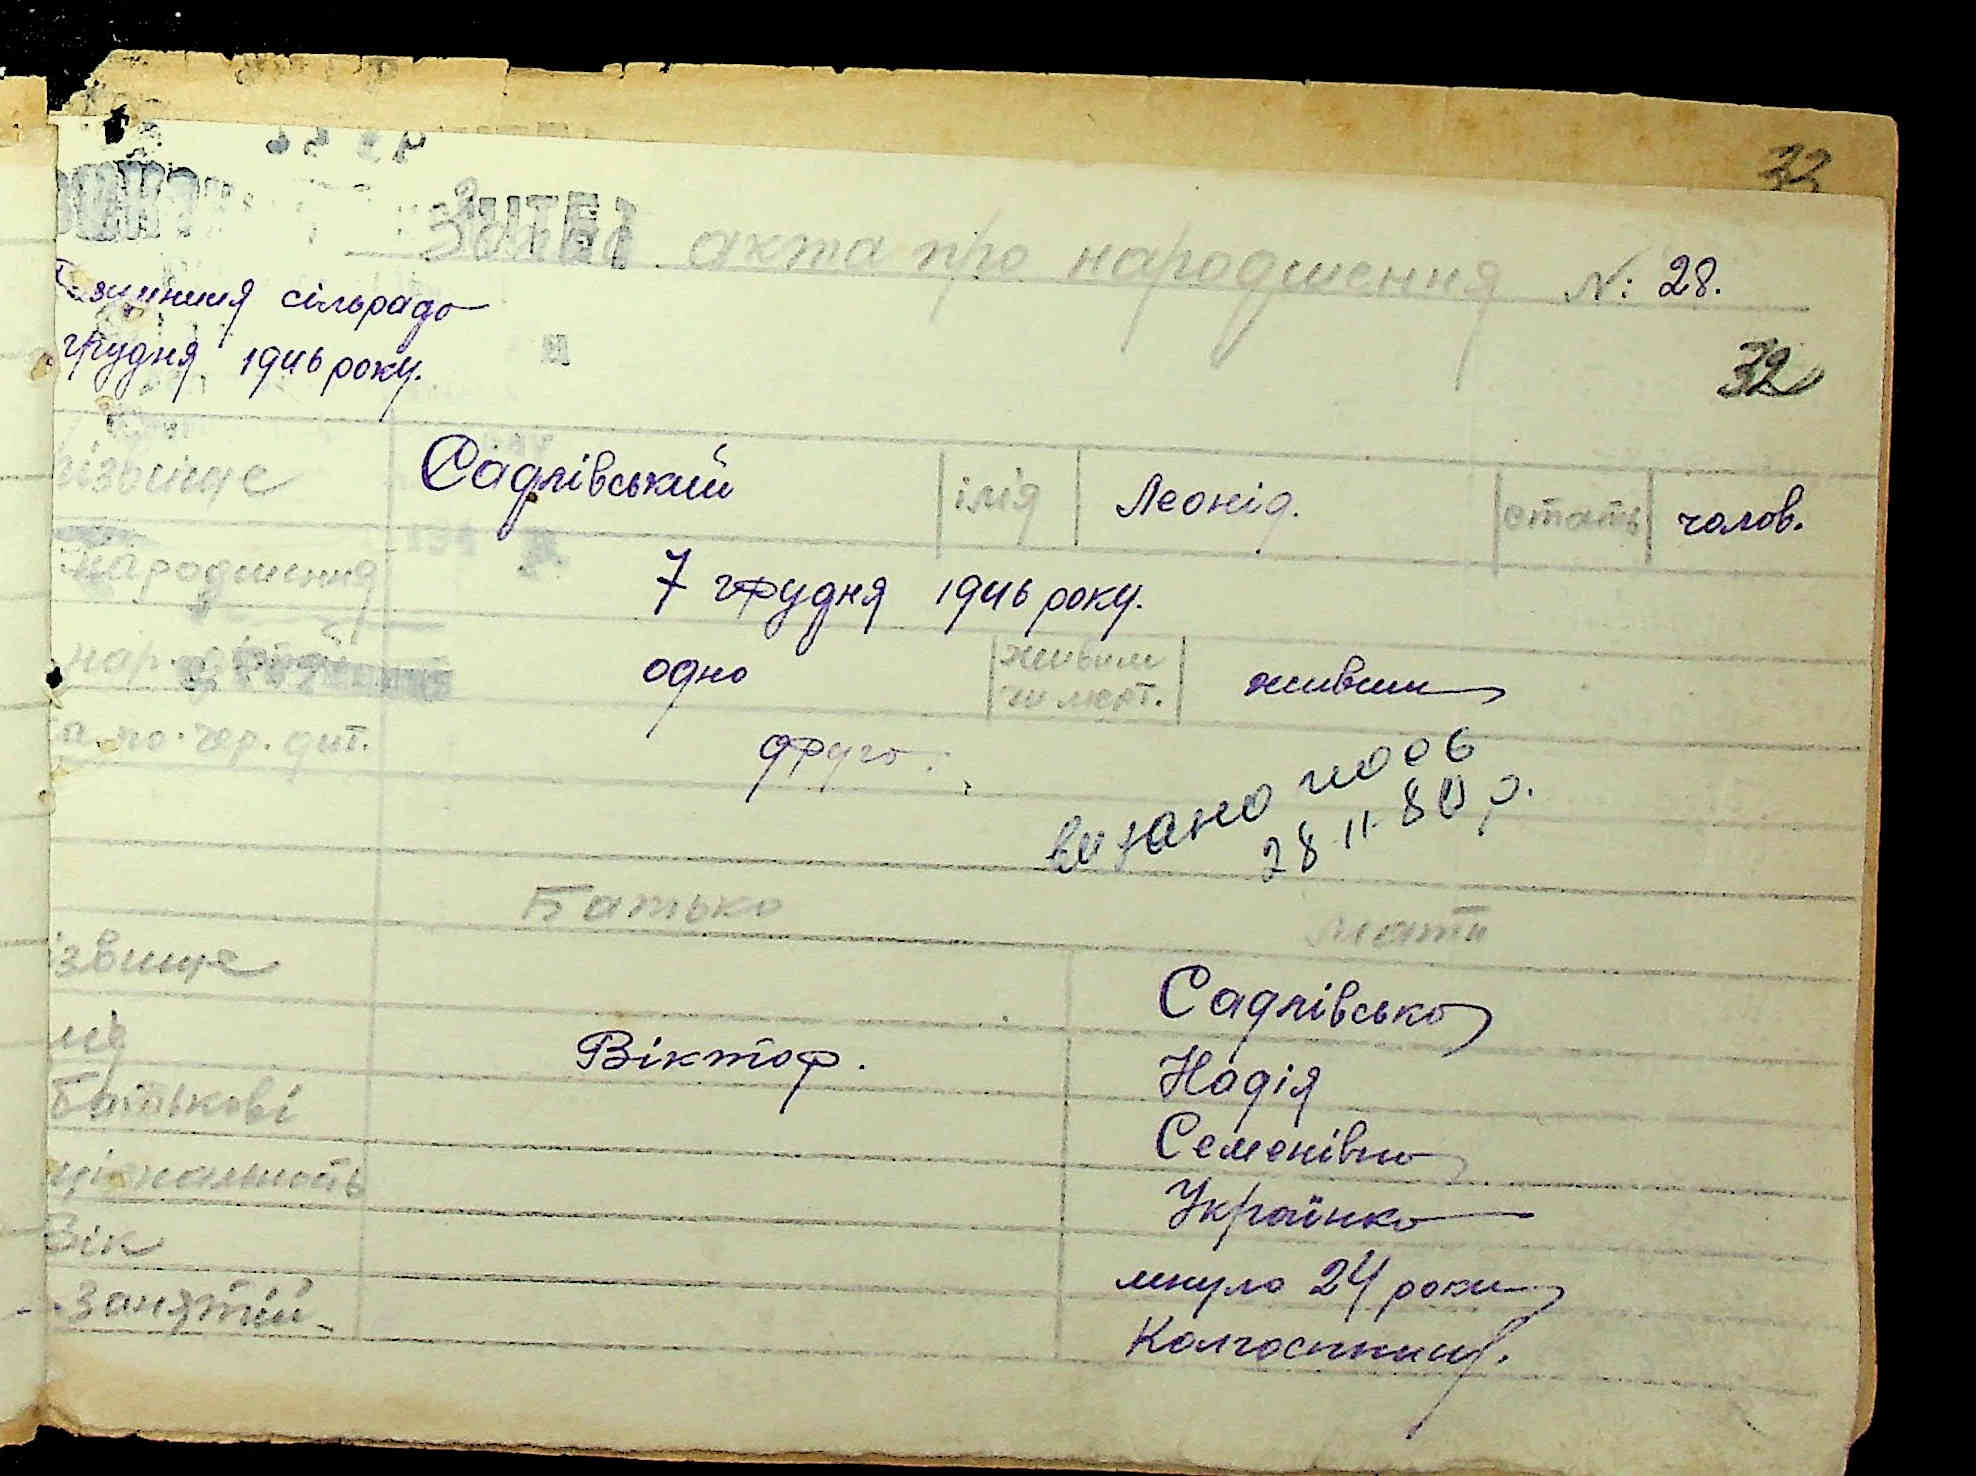 33
Запис акта про народження №: 28.
сільрада
грудня 1946 року.
32
прізвище Садлівський ім'я Леонід. стать чолов.
народження 7 грудня 1946 року.
нар. одно живим чи мерт. живим
а по чер. дит. друга.
видано повт
28.11.80 р.
Батько мати
ізвище Садлівська
мя Віктор. Надія
Батькові Семенівна
ціональность Українка
Вік минуло 24 роки
занятій Колгоспниця.